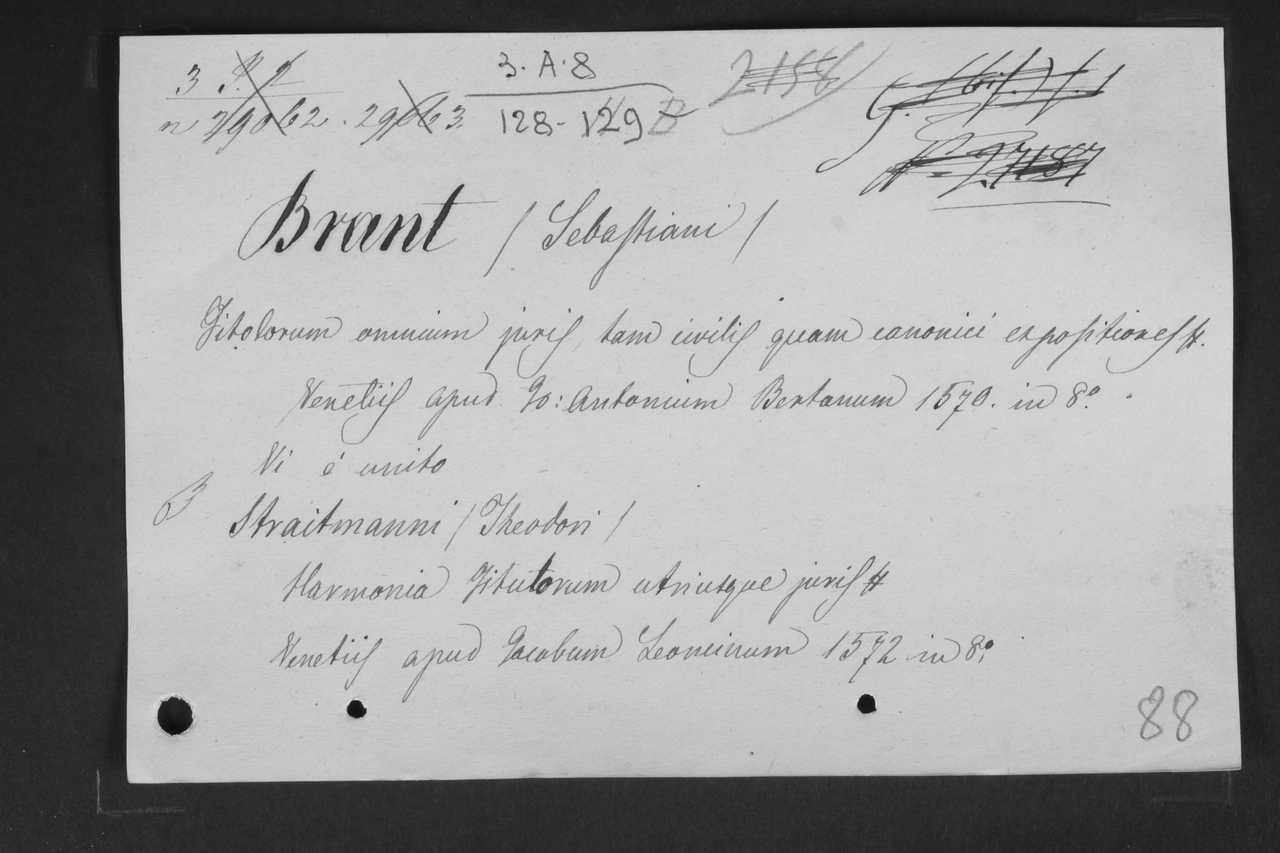 3. A. 8
128-129
Brant / Sebastiani /
Titolorum omnium juris, tam civilis quam canonici expositiones #.
Venetiis apud Jo: Antonium Bertanum 1570. in 8.º
Vi é unito
Straitmanni / Theodori /
Harmonia Titulorum utriusque juris #
Venetiis apud Jacobum Leoncinum 1572 in 8.º
88